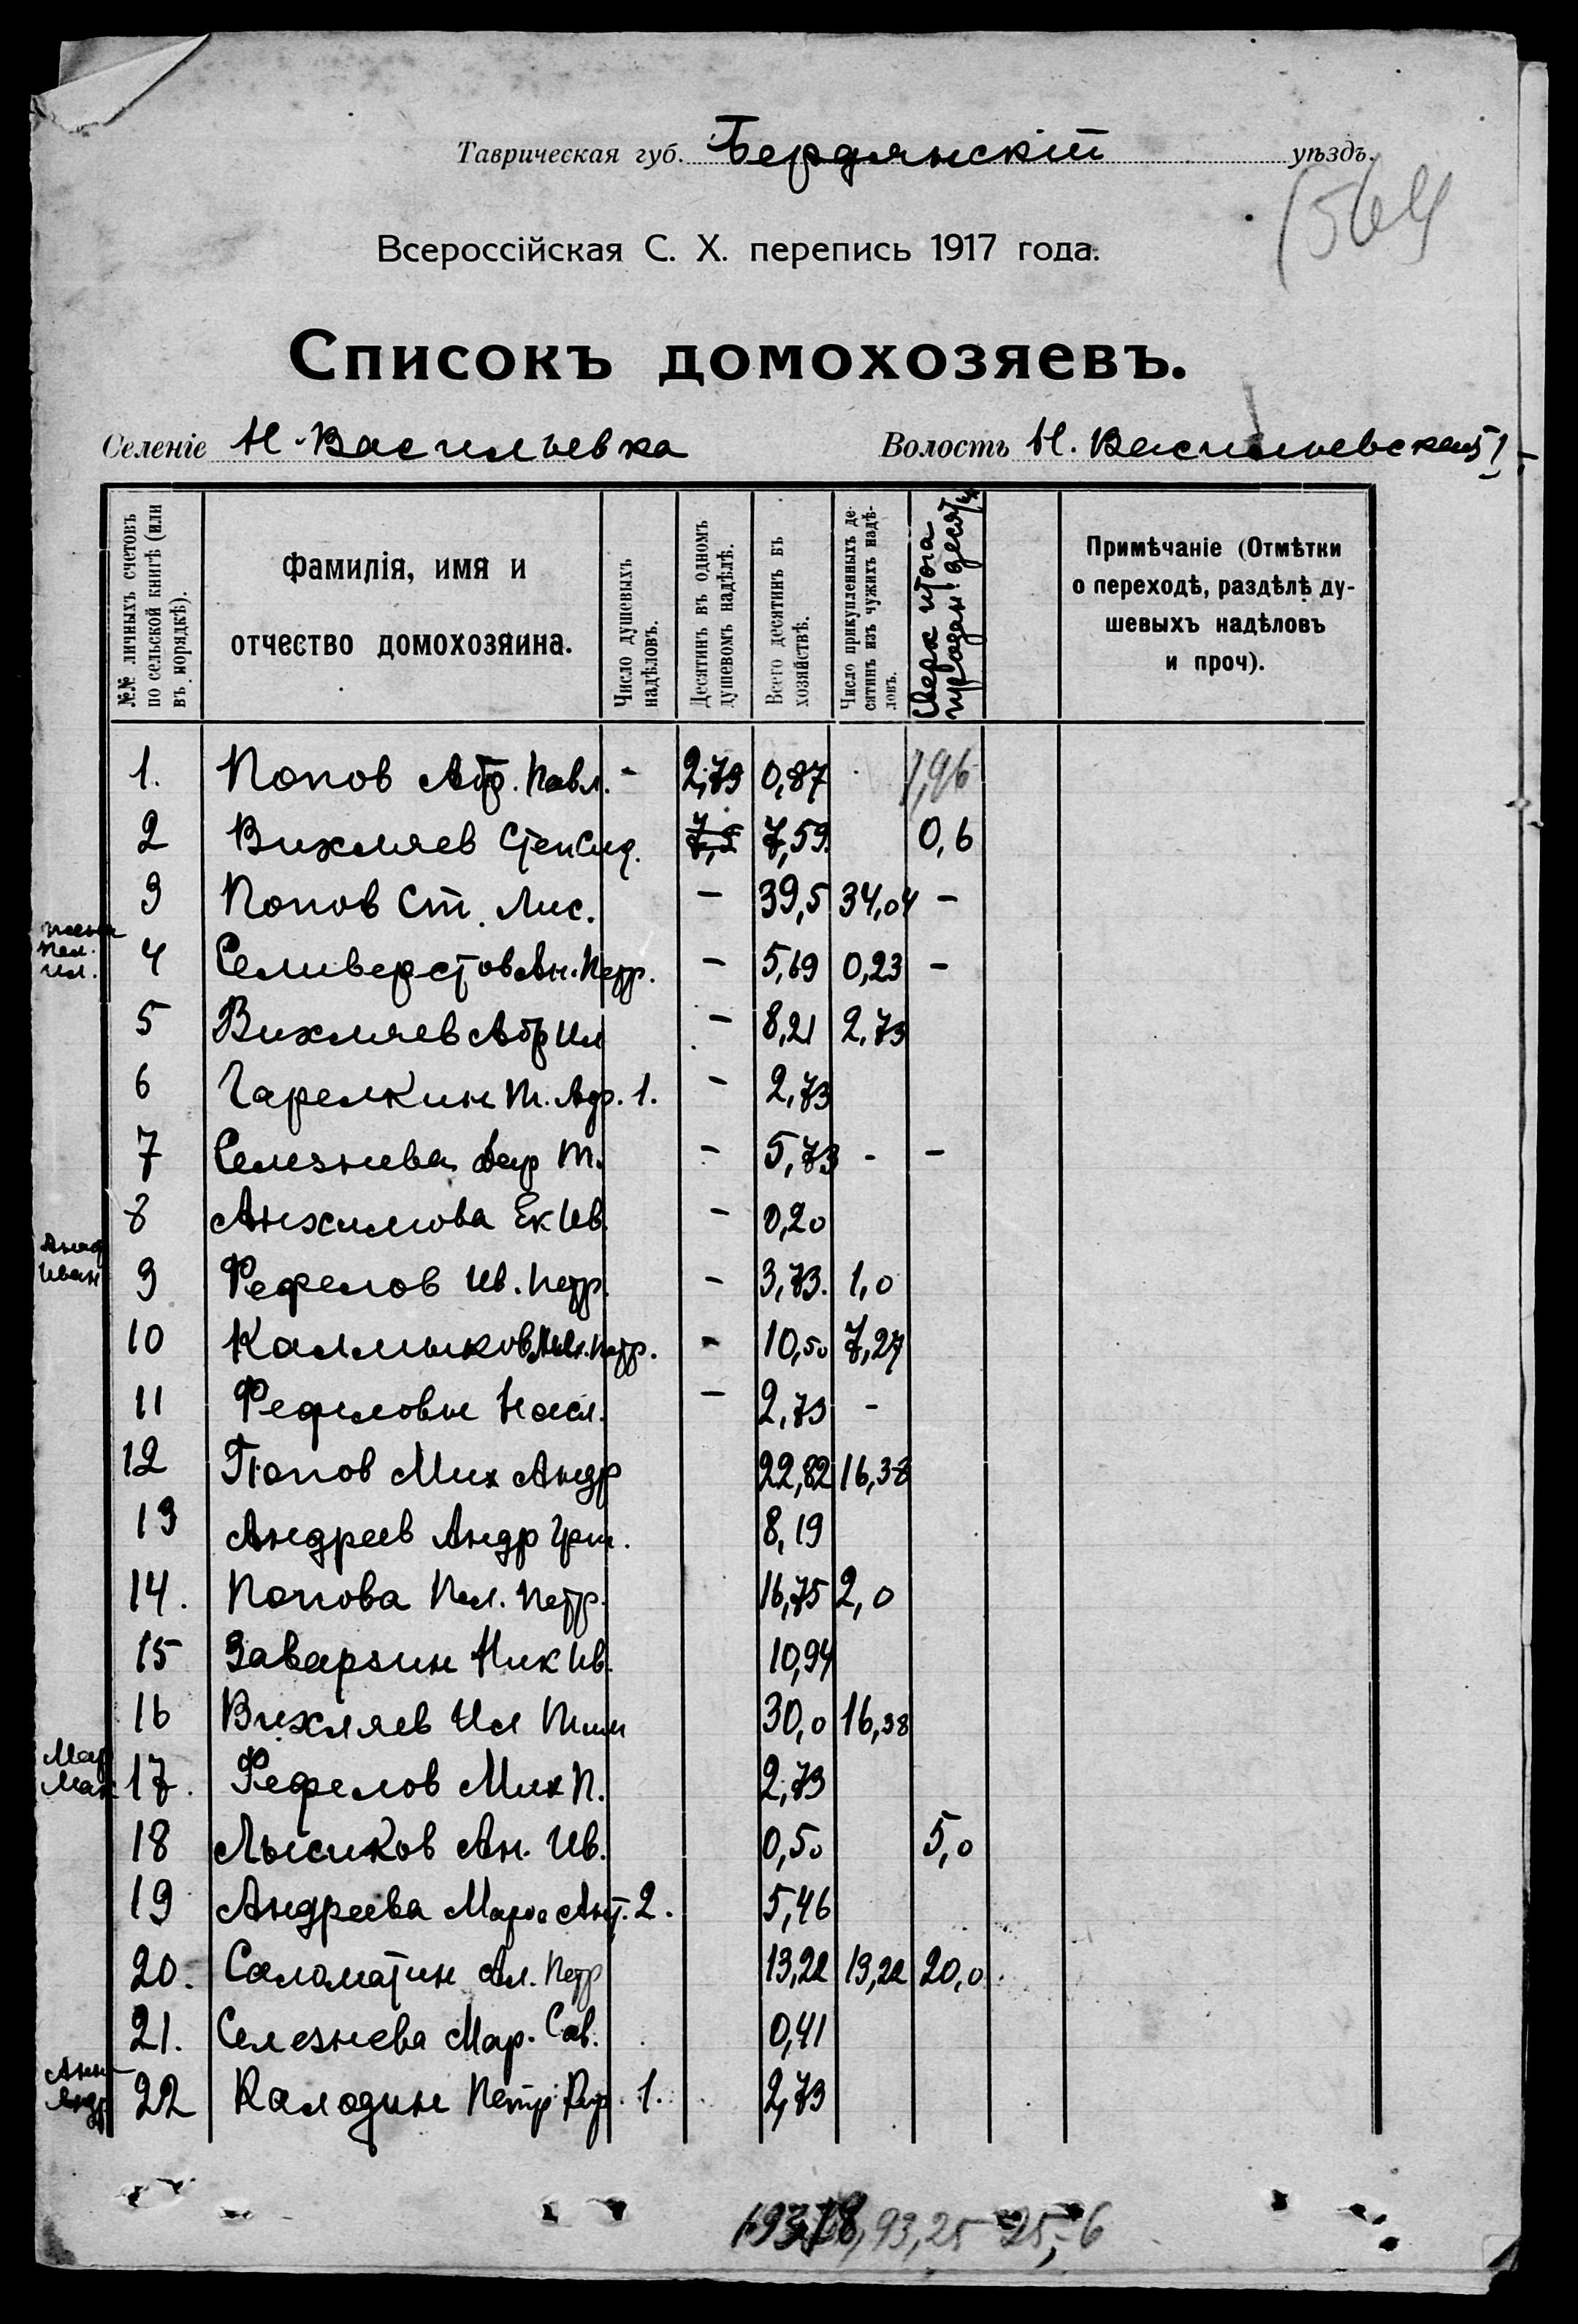 Таврическая губ. Бердянскій уѣздъ.
564
Всероссійская С. Х. перепись 1917 года.
Списокъ домохозяевъ.
Селеніе Н-Васильевка Волость Н. Васильевской
№№ личныхъ счетовъ по сельской книгѣ (или въ порядкѣ).
Фамилія, имя и отчество домохозяина.
Число душевыхъ надѣловъ.
Десятинъ въ одномъ душевомъ надѣлѣ.
Всего десятинъ въ хозяйствѣ.
Число прикупленныхъ десятинъ изъ чужихъ надѣловъ.
Сверх итога продан. десят.
Примѣчаніе (Отмѣтки о переходѣ, раздѣлѣ душевыхъ надѣловъ и проч).
1. Попов Абр. Павл. - 2,73 0,87 1,96
2 Вихляев Степ Сид. 7,59 0,6
3 Попов Ст. Лис. - 39,5 34,04 -
Пел.
Ил.
4 Селиверстов Ан. Петр. - 5,69 0,23 -
5 Вихляев Абр Ил - 8,21 2,73
6 Гарелкин Т. Адр. 1. - 2,73
7 Селезнева Вар Т. - 5,73 - -
8 Анхимова Ек Ив. - 0,20
Иван
9 Фефелов Ив. Петр. - 3,73. 1,0
10 Калмыков Петр. - 10,50 7,27
11 Фефеловы Насл. - 2,73 -
12 Попов Мих Андр 22,82 16,38
13 Андреев Андр Григ. 8,19
14. Попова Пел. Петр. 16,75 2,0
15 Заварзин Ник Ив. 10,94
16 Вихляев Ил Тим 30,0 16,38
Мар
Мак
17. Фефелов Мих П. 2,73
18 Лысиков Ан. Ив. 0,50 5,0
19 Андреева Марфа Ант. 2. 5,46
20. Саломатин Ал. Петр 13,22 13,22 20,0
21. Селезнева Мар. Сав. 0,41
Анн
Андр
22 Калодин Петр Кир. 1. 2,73
93,25